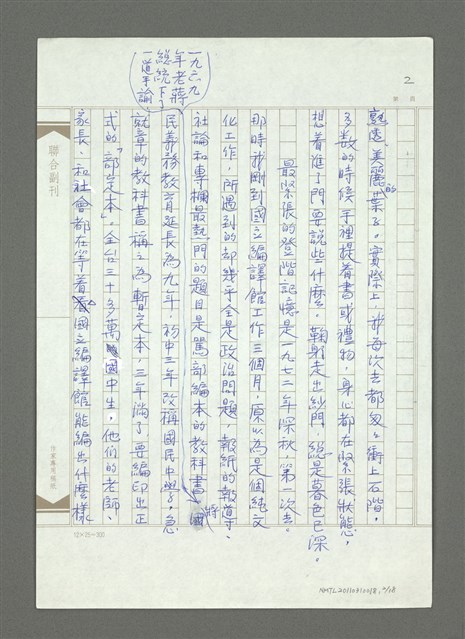 2
頁
聯合副刊
憩透、美麗的葉子。實際上,我每次去都匆匆衝上石階,
多数的時候手裡提着書或禮物,身心都在緊張狀態,
想着進了門要說些什麼。鞠躬走出紗門,總是暮色已深。
最緊張的登階記憶是一九七二年深秋,第一次去。
那時我剛到國立編譯館工作三個月,原以為是個純文
化工作,所遇到的却幾乎全是政治問題,報紙的報導、
社論和專欄最熱門的題目是罵部編本的教科書。
一九六九年老蔣總統下了一道手諭,將國
民義務教育延長為九年,初中三年改稱國民中學。急
就章的教科書稱之為暫定本,三年滿了要編印出正
式的「部定本」,全台三十多萬國中生,他們的老師、
家長、和社會都在等着看國立編譯館能編出什麼樣
作家專用稿紙
12×25=300
NMTL20110910018, 2/18